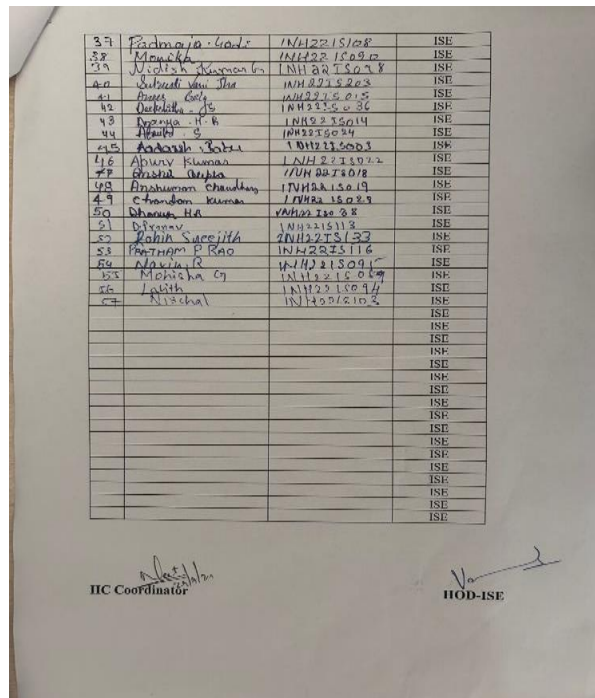 37 Padmaja Godi 1NH22IS108 ISE
38 Monika 1NH22IS090 ISE
39 Nidish Kumar G 1NH22IS098 ISE
40 Vani Jha 1NH22IS203 ISE
41 1NH22IS015 ISE
42 1NH22IS036 ISE
43 Ananya . H . R 1NH22IS014 ISE
44 . S 1NH22IS024 ISE
45 Aadarsh Babu 1NH22IS003 ISE
46 Apurv Kumar 1NH22IS022 ISE
47 Anshul Gupta 1NH22IS018 ISE
48 Anshuman Chaudhary 1NH22IS019 ISE
49 Chandan Kumar 1NH22IS029 ISE
50 Dhanya HR 1NH22IS038 ISE
51 D.Pranav 1NH22IS113 ISE
52 Rohin Sreejith 1NH22IS133 ISE
53 PRATHAM P RAO 1NH22IS116 ISE
54 Navin.R 1NH22IS095 ISE
55 Mohisha G 1NH22IS089 ISE
56 Lalith 1NH22IS094 ISE
57 Nischal 1NH22IS103 ISE
ISE
ISE
ISE
ISE
ISE
ISE
ISE
ISE
ISE
ISE
ISE
ISE
ISE
ISE
ISE
ISE
ISE
IIC Coordinator HOD-ISE